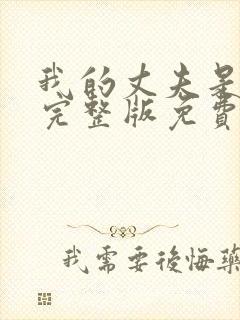 我的丈夫
完整版免費
我需要後悔藥